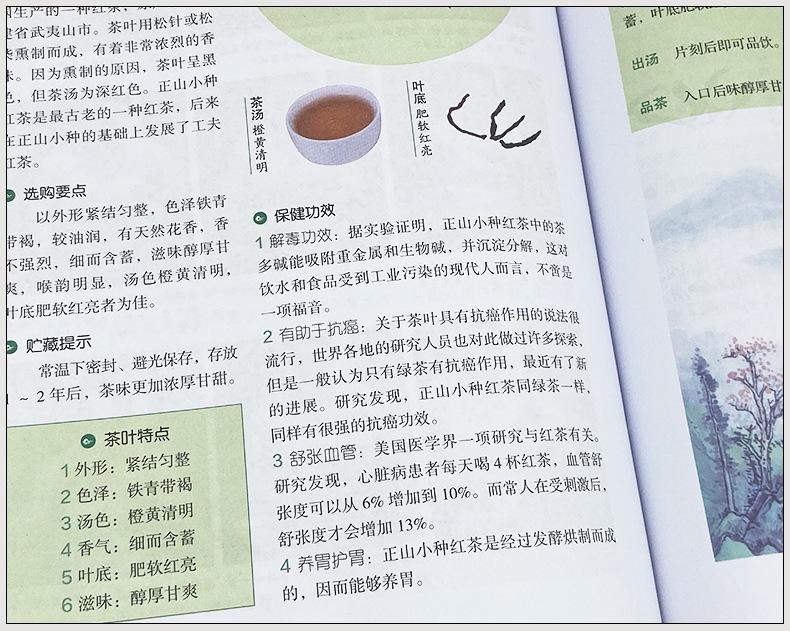 生产的一种红茶，
建省武夷山市。茶叶用松针或松
柴熏制而成，有着非常浓烈的香
味。因为熏制的原因，茶叶呈黑
色，但茶汤为深红色。正山小种
红茶是最古老的一种红茶，后来
在正山小种的基础上发展了工夫
红茶。
选购要点
以外形紧结匀整，色泽铁青
带褐，较油润，有天然花香，香
不强烈，细而含蓄，滋味醇厚甘
爽，喉韵明显，汤色橙黄清明，
叶底肥软红亮者为佳。
贮藏提示
常温下密封、避光保存，存放
1 ~ 2 年后，茶味更加浓厚甘甜。
茶叶特点
1 外形：紧结匀整
2 色泽：铁青带褐
3 汤色：橙黄清明
4 香气：细而含蓄
5 叶底：肥软红亮
6 滋味：醇厚甘爽
茶汤 橙黄清明
叶底 肥软红亮
保健功效
1 解毒功效：据实验证明，正山小种红茶中的茶
多碱能吸附重金属和生物碱，并沉淀分解，这对
饮水和食品受到工业污染的现代人而言，不啻是
一项福音。
2 有助于抗癌：关于茶叶具有抗癌作用的说法很
流行，世界各地的研究人员也对此做过许多探索，
但是一般认为只有绿茶有抗癌作用，最近有了新
的进展。研究发现，正山小种红茶同绿茶一样，
同样有很强的抗癌功效。
3 舒张血管：美国医学界一项研究与红茶有关。
研究发现，心脏病患者每天喝 4 杯红茶，血管舒
张度可以从 6% 增加到 10%。而常人在受刺激后，
舒张度才会增加 13%。
4 养胃护胃：正山小种红茶是经过发酵烘制而成
的，因而能够养胃。
蓄，叶底肥软
出汤 片刻后即可品饮。
品茶 入口后味醇厚甘